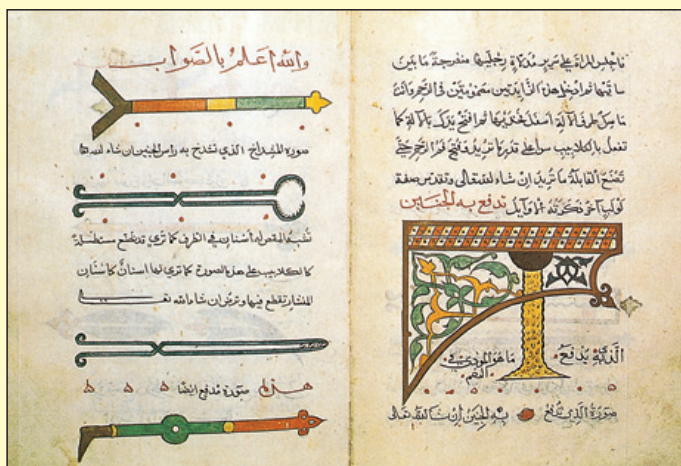 فاجلس المراة على سرير مدلاة رجليها منفرجة ما بين
ساقيها ثم ادخل هذا الزايدتين مضمومتين في الرحم وانت
ماسك طرف الآلة اسفل فخذيها ثم افتح يدك بالآلة كما
تفعل بالكلاليب سوا على قدر ما تريد فتح فم الرحم حتى
تصنع القابلة ما تريد ان شا الله تعالى وتقدس صفة
لولب آخر ذكرته الاوايل تدفع به الجنين
الذي يدفع ما هو المودي في
صورة الذي تدفع به الجنين ان شا الله تعالى
والله اعلم بالصواب
صورة المشداخ الذي تشدخ به راس الجنين ان شاء الله
تشبه المقص له اسنان في الطرف كما ترى قد تصنع مستطيلة
كالكلاليب على هذه الصورة كما ترى لها اسنان كاسنان
المنشار تقطع فيها وترض ان شاء الله تعالى
صورة مدفع ايضا